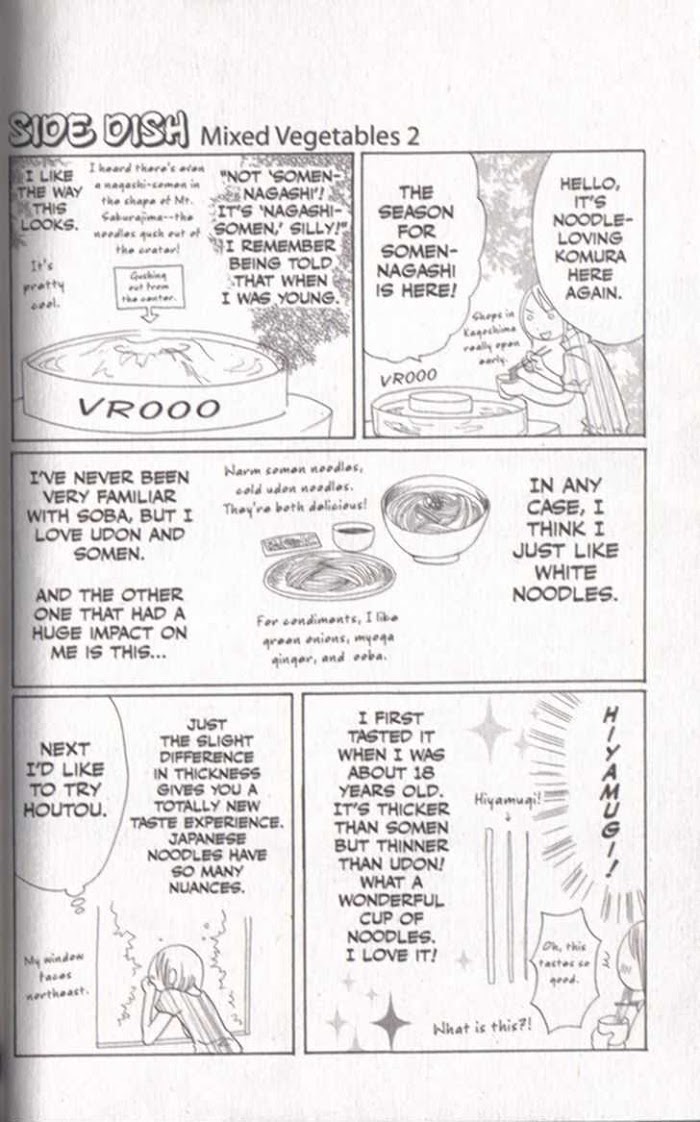 SIDE DISH Mixed Vegetables 2
HELLO,
IT'S
NOODLE-
LOVING
KOMURA
HERE
AGAIN.
THE
SEASON
FOR
SOMEN-
NAGASHI
IS HERE!
Shops in
Kagoshima
really open
early.
VROOO
"NOT 'SOMEN-
NAGASHI'!
IT'S 'NAGASHI-
SOMEN,' SILLY!"
I REMEMBER
BEING TOLD
THAT WHEN
I WAS YOUNG.
I heard there's even
a nagashi-somen in
the shape of Mt.
Sakurajima--the
noodles gush out of
the crater!
Gushing
out from
the center.
I LIKE
THE WAY
THIS
LOOKS.
It's
pretty
cool.
VROOO
IN ANY
CASE, I
THINK I
JUST LIKE
WHITE
NOODLES.
Warm somen noodles,
cold udon noodles.
They're both delicious!
For condiments, I like
green onions, myoga
ginger, and ooba.
I'VE NEVER BEEN
VERY FAMILIAR
WITH SOBA, BUT I
LOVE UDON AND
SOMEN.
AND THE OTHER
ONE THAT HAD A
HUGE IMPACT ON
ME IS THIS...
HIYAMUGI!
Hiyamugi!
I FIRST
TASTED IT
WHEN I WAS
ABOUT 18
YEARS OLD.
IT'S THICKER
THAN SOMEN
BUT THINNER
THAN UDON!
WHAT A
WONDERFUL
CUP OF
NOODLES.
I LOVE IT!
Oh, this
tastes so
good.
What is this?!
JUST
THE SLIGHT
DIFFERENCE
IN THICKNESS
GIVES YOU A
TOTALLY NEW
TASTE EXPERIENCE.
JAPANESE
NOODLES HAVE
SO MANY
NUANCES.
NEXT
I'D LIKE
TO TRY
HOUTOU.
My window
faces
northeast.